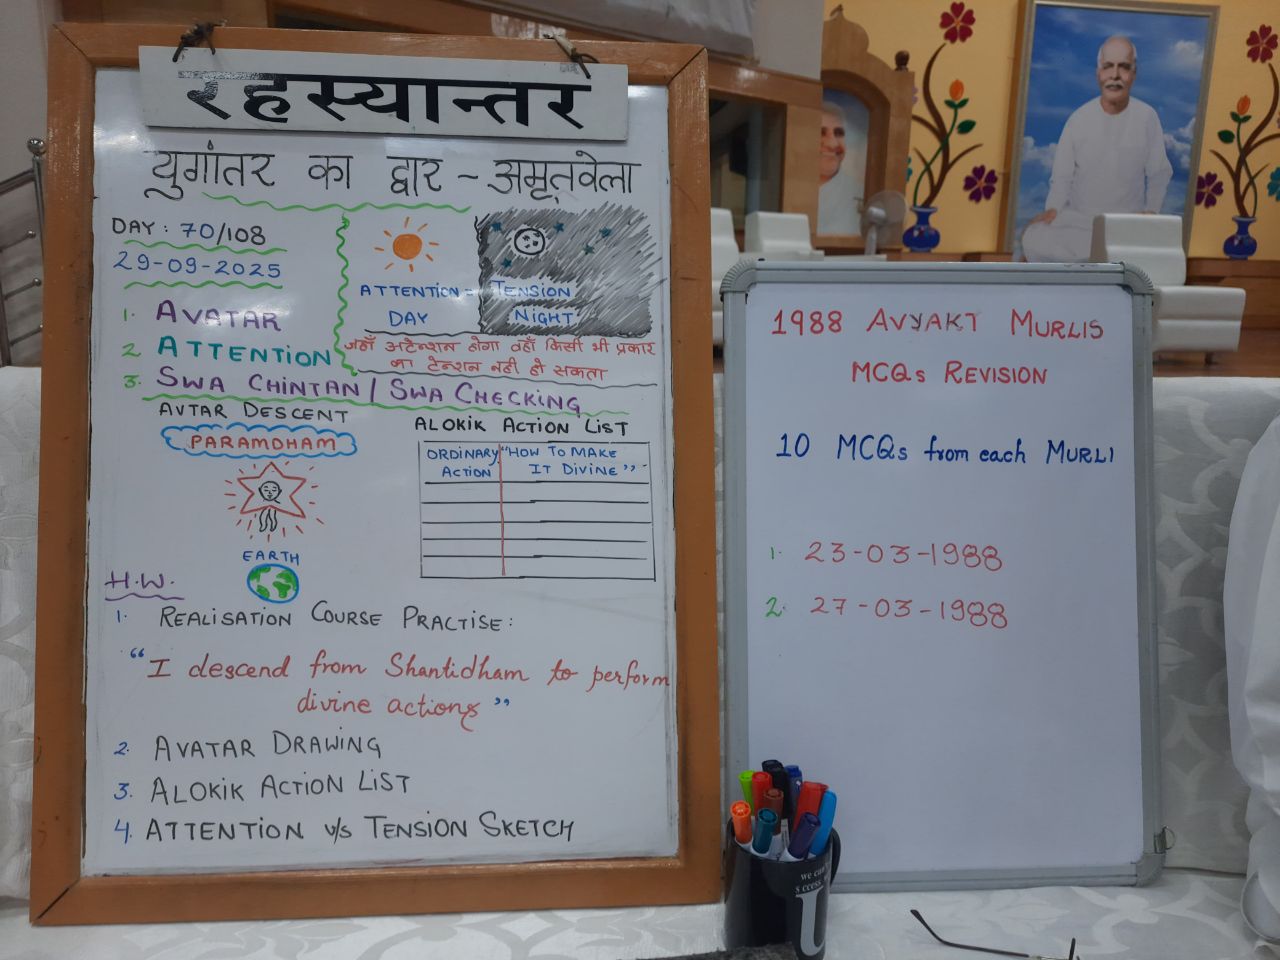 रहस्यान्तर
युगांतर का द्वार - अमृतवेला
DAY : 70/108
29-09-2025
1. AVATAR
2. ATTENTION
3. SWA CHINTAN / SWA CHECKING
ATTENTION = TENSION
DAY NIGHT
जहाँ अटेन्शन होगा वहाँ किसी भी प्रकार
का टेन्शन नही हो सकता
AVTAR DESCENT
PARAMDHAM
EARTH
ALOKIK ACTION LIST
ORDINARY ACTION
"HOW TO MAKE IT DIVINE"
H.W.
1. REALISATION COURSE PRACTISE :
"I descend from Shantidham to perform
divine actions"
2. AVATAR DRAWING
3. ALOKIK ACTION LIST
4. ATTENTION v/s TENSION SKETCH
1988 AVYAKT MURLIS
MCQs REVISION
10 MCQs from each MURLI
1. 23-03-1988
2. 27-03-1988
we can
U